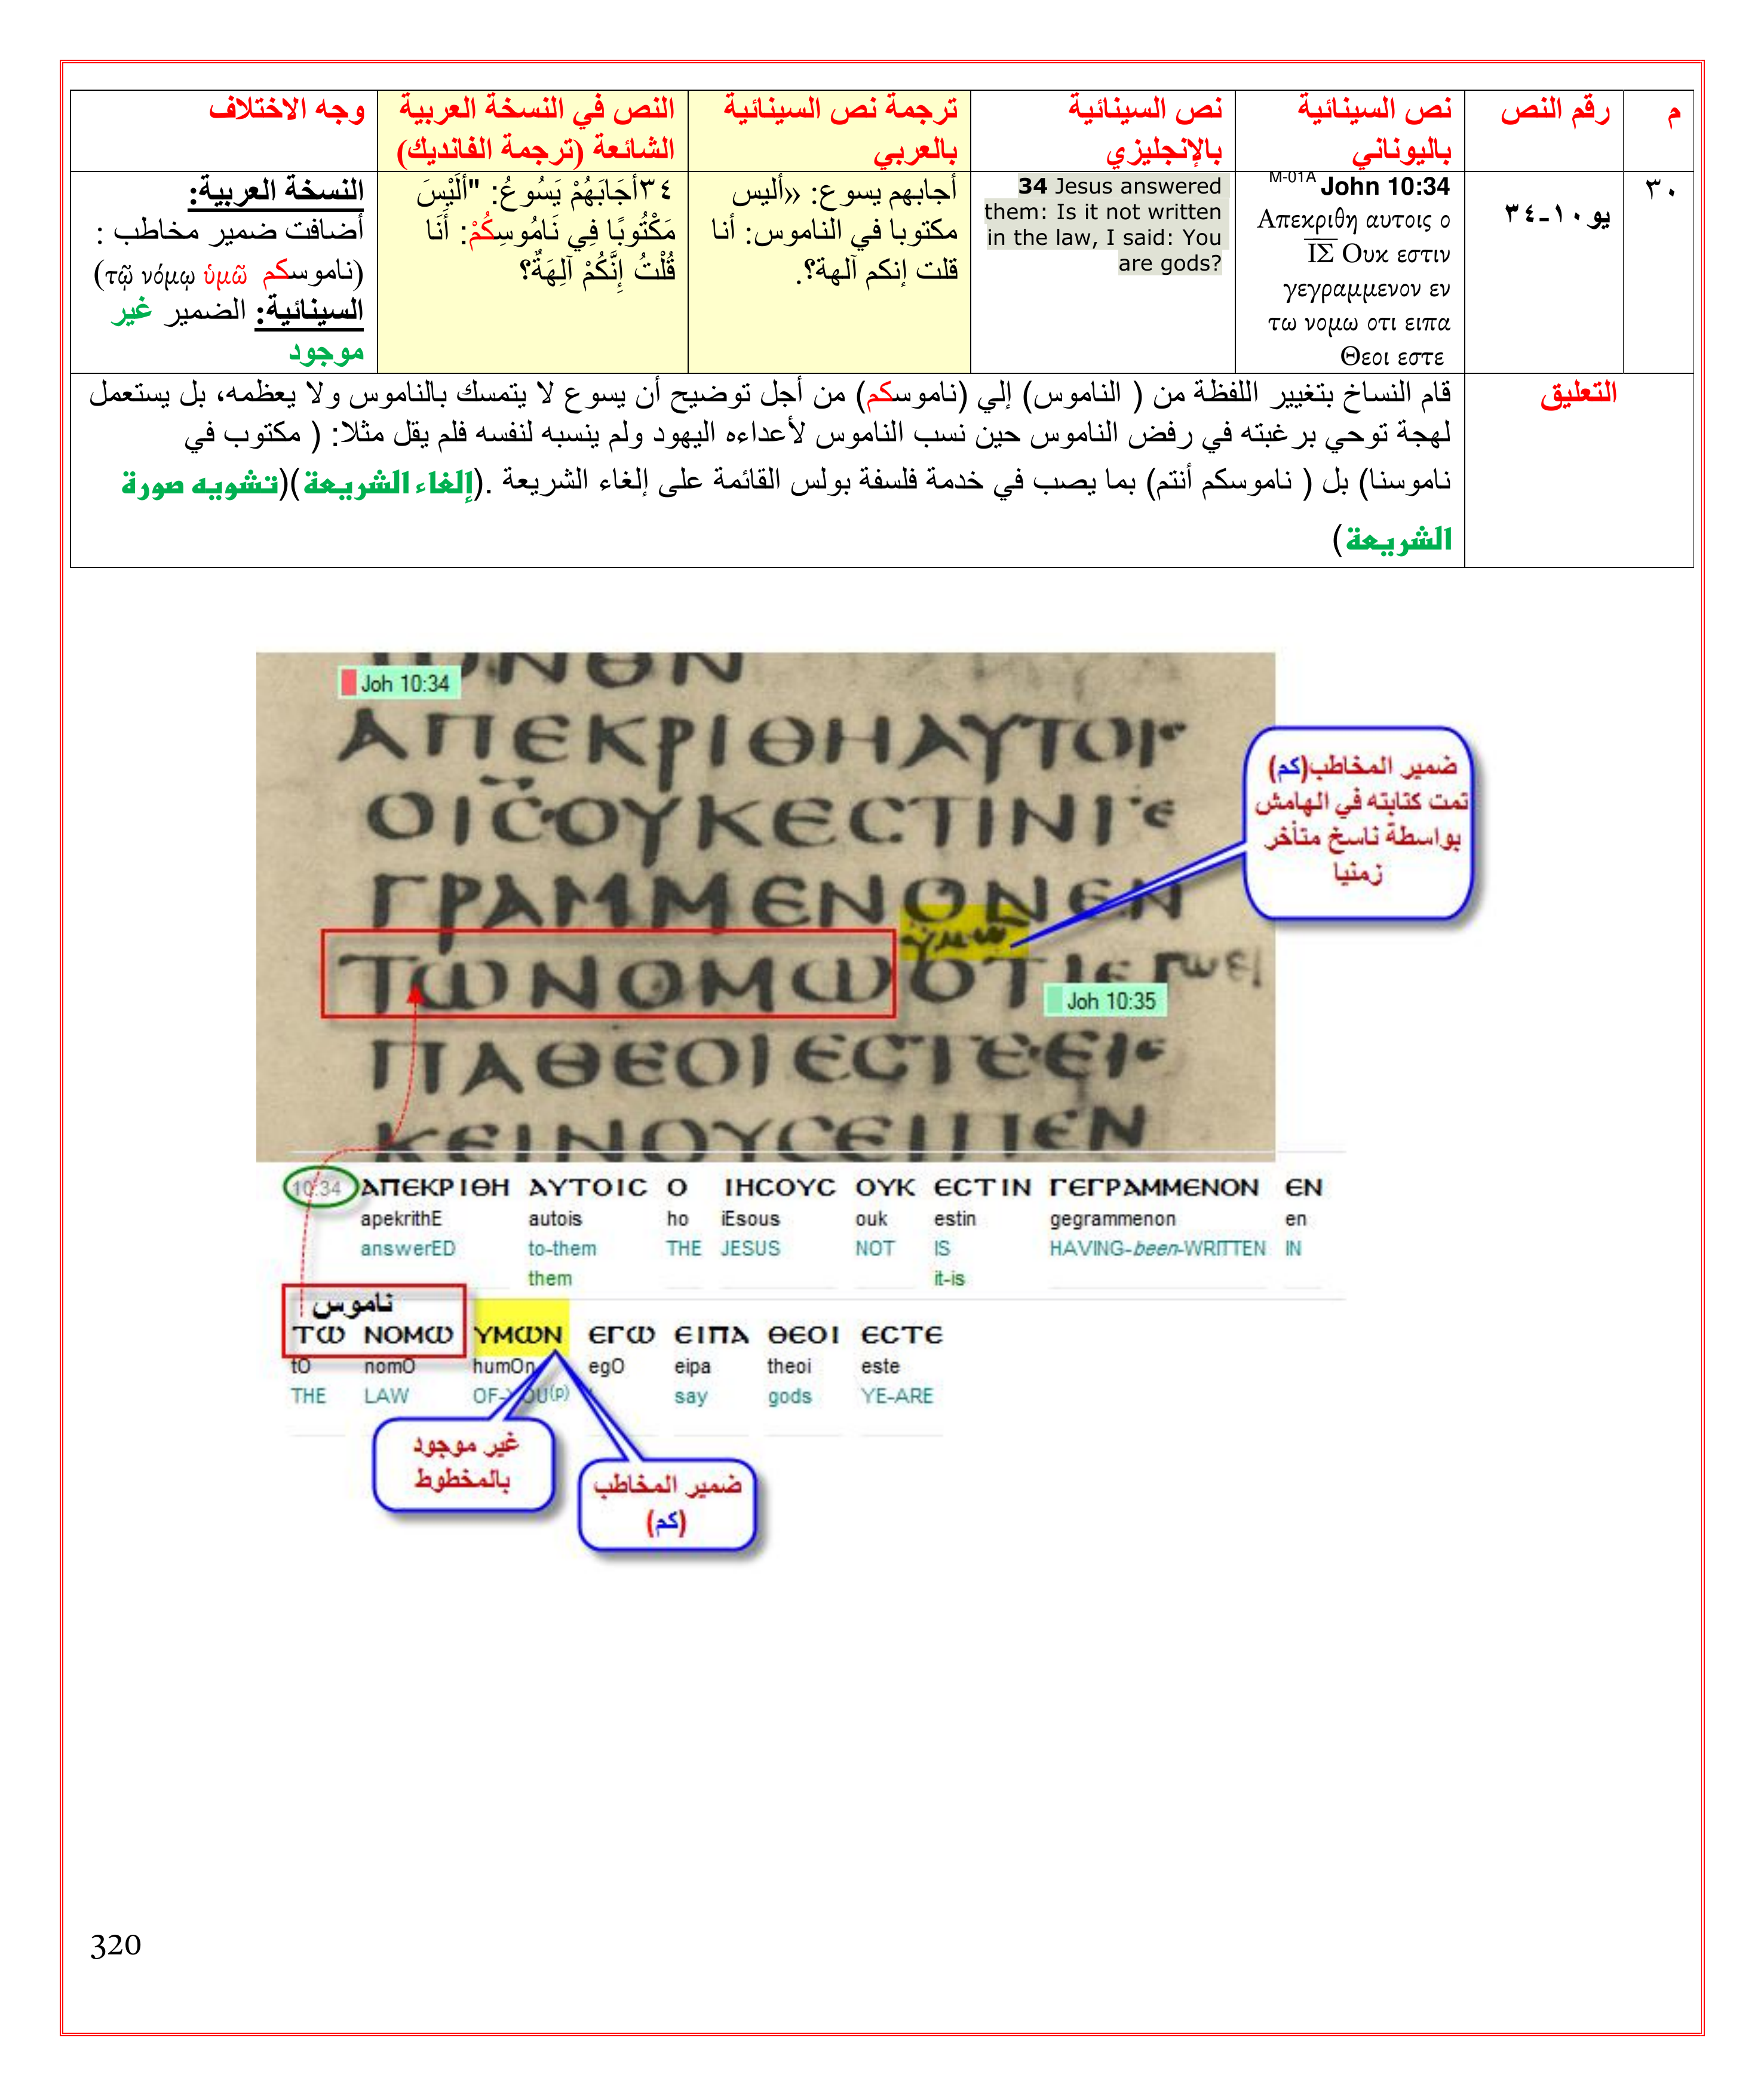 م
رقم النص
نص السينائية
باليوناني
نص السينائية
بالإنجليزي
ترجمة نص السينائية
بالعربي
النص في النسخة العربية
الشائعة (ترجمة الفانديك)
وجه الاختلاف
٣٠
يو١٠-٣٤
M-01A John 10:34
Απεκριθη αυτοις ο
ΙΣ Ουκ εστιν
γεγραμμενον εν
τω νομω οτι ειπα
Θεοι εστε
34 Jesus answered
them: Is it not written
in the law, I said: You
are gods?
أجابهم يسوع: «أليس
مكتوبا في الناموس: أنا
قلت إنكم آلهة؟.
٣٤أَجَابَهُمْ يَسُوعُ: "أَلَيْسَ
مَكْتُوبًا فِي نَامُوسِكُمْ: أَنَا
قُلْتُ إِنَّكُمْ آلِهَةٌ؟
النسخة العربية:
أضافت ضمير مخاطب :
(ناموسكم τῷ νόμῳ ὑμῶ̃)
السينائية: الضمير غير
موجود
التعليق
قام النساخ بتغيير اللفظة من ( الناموس) إلي (ناموسكم) من أجل توضيح أن يسوع لا يتمسك بالناموس ولا يعظمه، بل يستعمل
لهجة توحي برغبته في رفض الناموس حين نسب الناموس لأعداءه اليهود ولم ينسبه لنفسه فلم يقل مثلا: ( مكتوب في
ناموسنا) بل ( ناموسكم أنتم) بما يصب في خدمة فلسفة بولس القائمة على إلغاء الشريعة .(إلغاء الشريعة)(تشويه صورة
الشريعة)
Joh 10:34
ΑΠΕΚΡΙΘΗΑΥΤΟΙ
ΟΙϹΟΥΚΕϹΤΙΝΓΕ
ΓΡΑΜΜΕΝΟΝΕΝ
υμω
ΤΩΝΟΜΩΟΤΙΕΓωει
Joh 10:35
ΠΑΘΕΟΙΕϹΤΕΕΙΕ
ΚΕΙΝΟΥϹΕΙΠΕΝ
ضمير المخاطب(كم)
تمت كتابته في الهامش
بواسطة ناسخ متأخر
زمنيا
10:34 ΑΠΕΚΡΙΘΗ ΑΥΤΟΙϹ Ο ΙΗϹΟΥϹ ΟΥΚ ΕϹΤΙΝ ΓΕΓΡΑΜΜΕΝΟΝ ΕΝ
apekrithE autois ho iEsous ouk estin gegrammenon en
answerED to-them THE JESUS NOT IS HAVING-been-WRITTEN IN
them it-is
ناموس
ΤΩ ΝΟΜΩ ΥΜΩΝ ΕΓΩ ΕΙΠΑ ΘΕΟΙ ΕϹΤΕ
tO nomO humOn egO eipa theoi este
THE LAW OF-YOU(p) say gods YE-ARE
غير موجود
بالمخطوط
ضمير المخاطب
(كم)
320